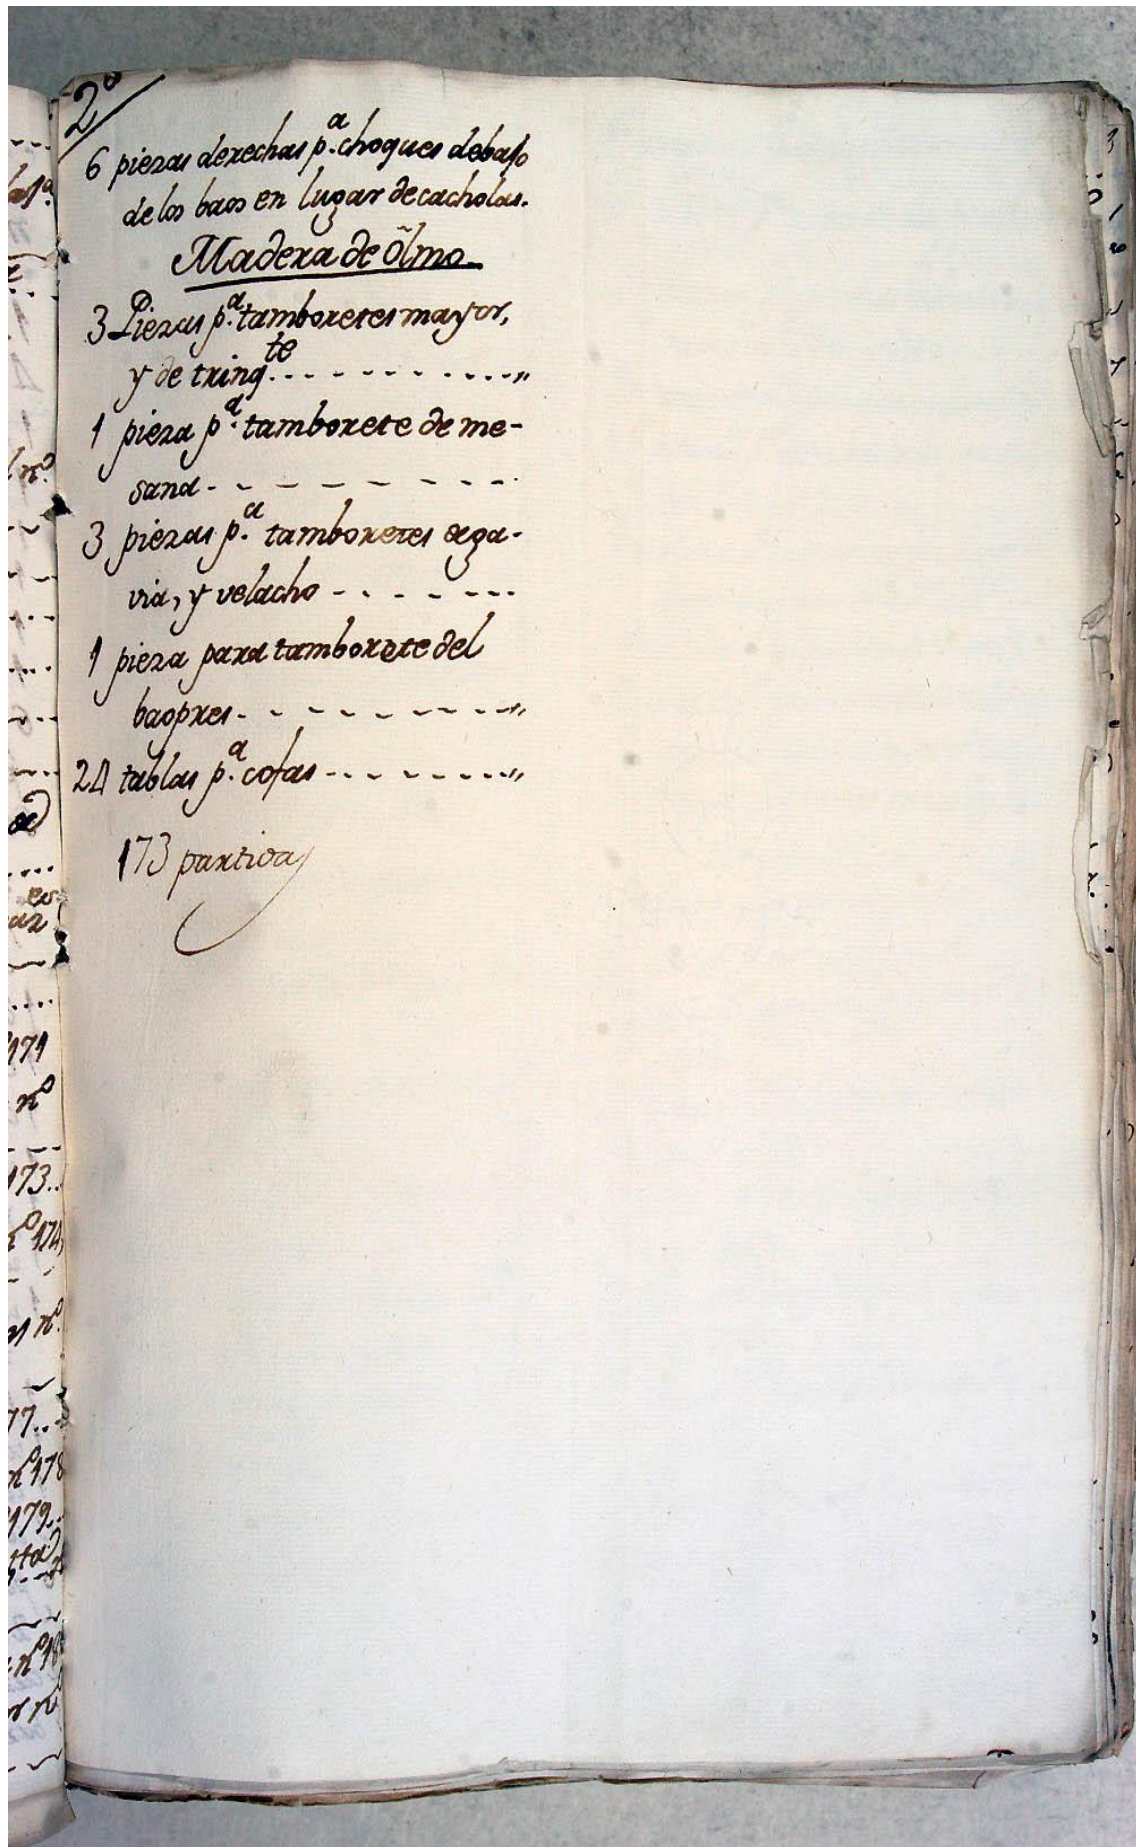 2º
6 piezas derechas p.ª choques debajo
de los baos en lugar de cacholas.
Madera de ôlmo
3 Piezas p.ª tamboretes mayor,
y de trinq.te
1 pieza p.ª tamborete de me-
sana
3 piezas p.ª tamboretes de ga-
via, y velacho
1 pieza para tamborete del
baopres
24 tablas p.ª cofas
173 partidas
171
nº
173..
nº 174,
nº
77..
nº 178
179..